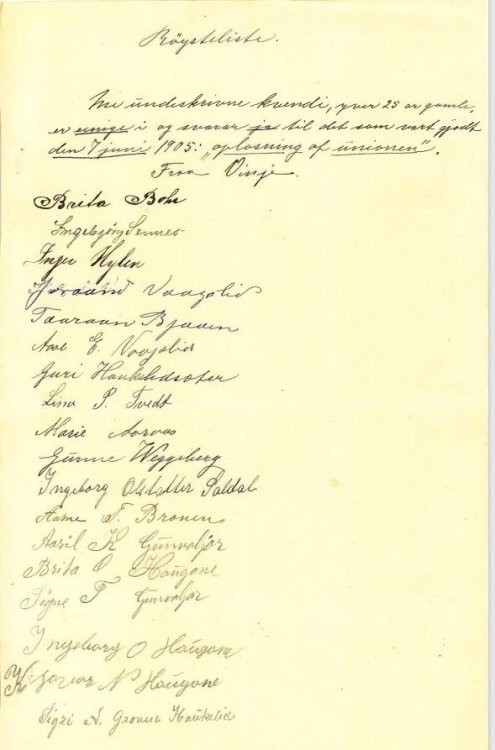 Röysteliste.
Me underskrivne kvendi, yver 25 år gamle,
er einige i og svarar ja til det som vart gjodt
den 7 juni 1905: "oplösning af unionen".
Fraa Vinje.
Brita Bohr
Ingebjörg Sennes
Inger Hylen
Vaagslid
Taaraan Bjaaen
Aase E. Vaagslid
Guri Haukelidsæter
Lina P. Tvedt
Marie Aaraas
Gunne Weggeberg
Ingeborg Olsdatter Saldal
Aasne T. Bronen
Aasil K Gunvaljor
Brita O Haugane
Signe T Gunvaljor
Ingeborg O Haugane
N Haugane
Sigri A. Haukelid